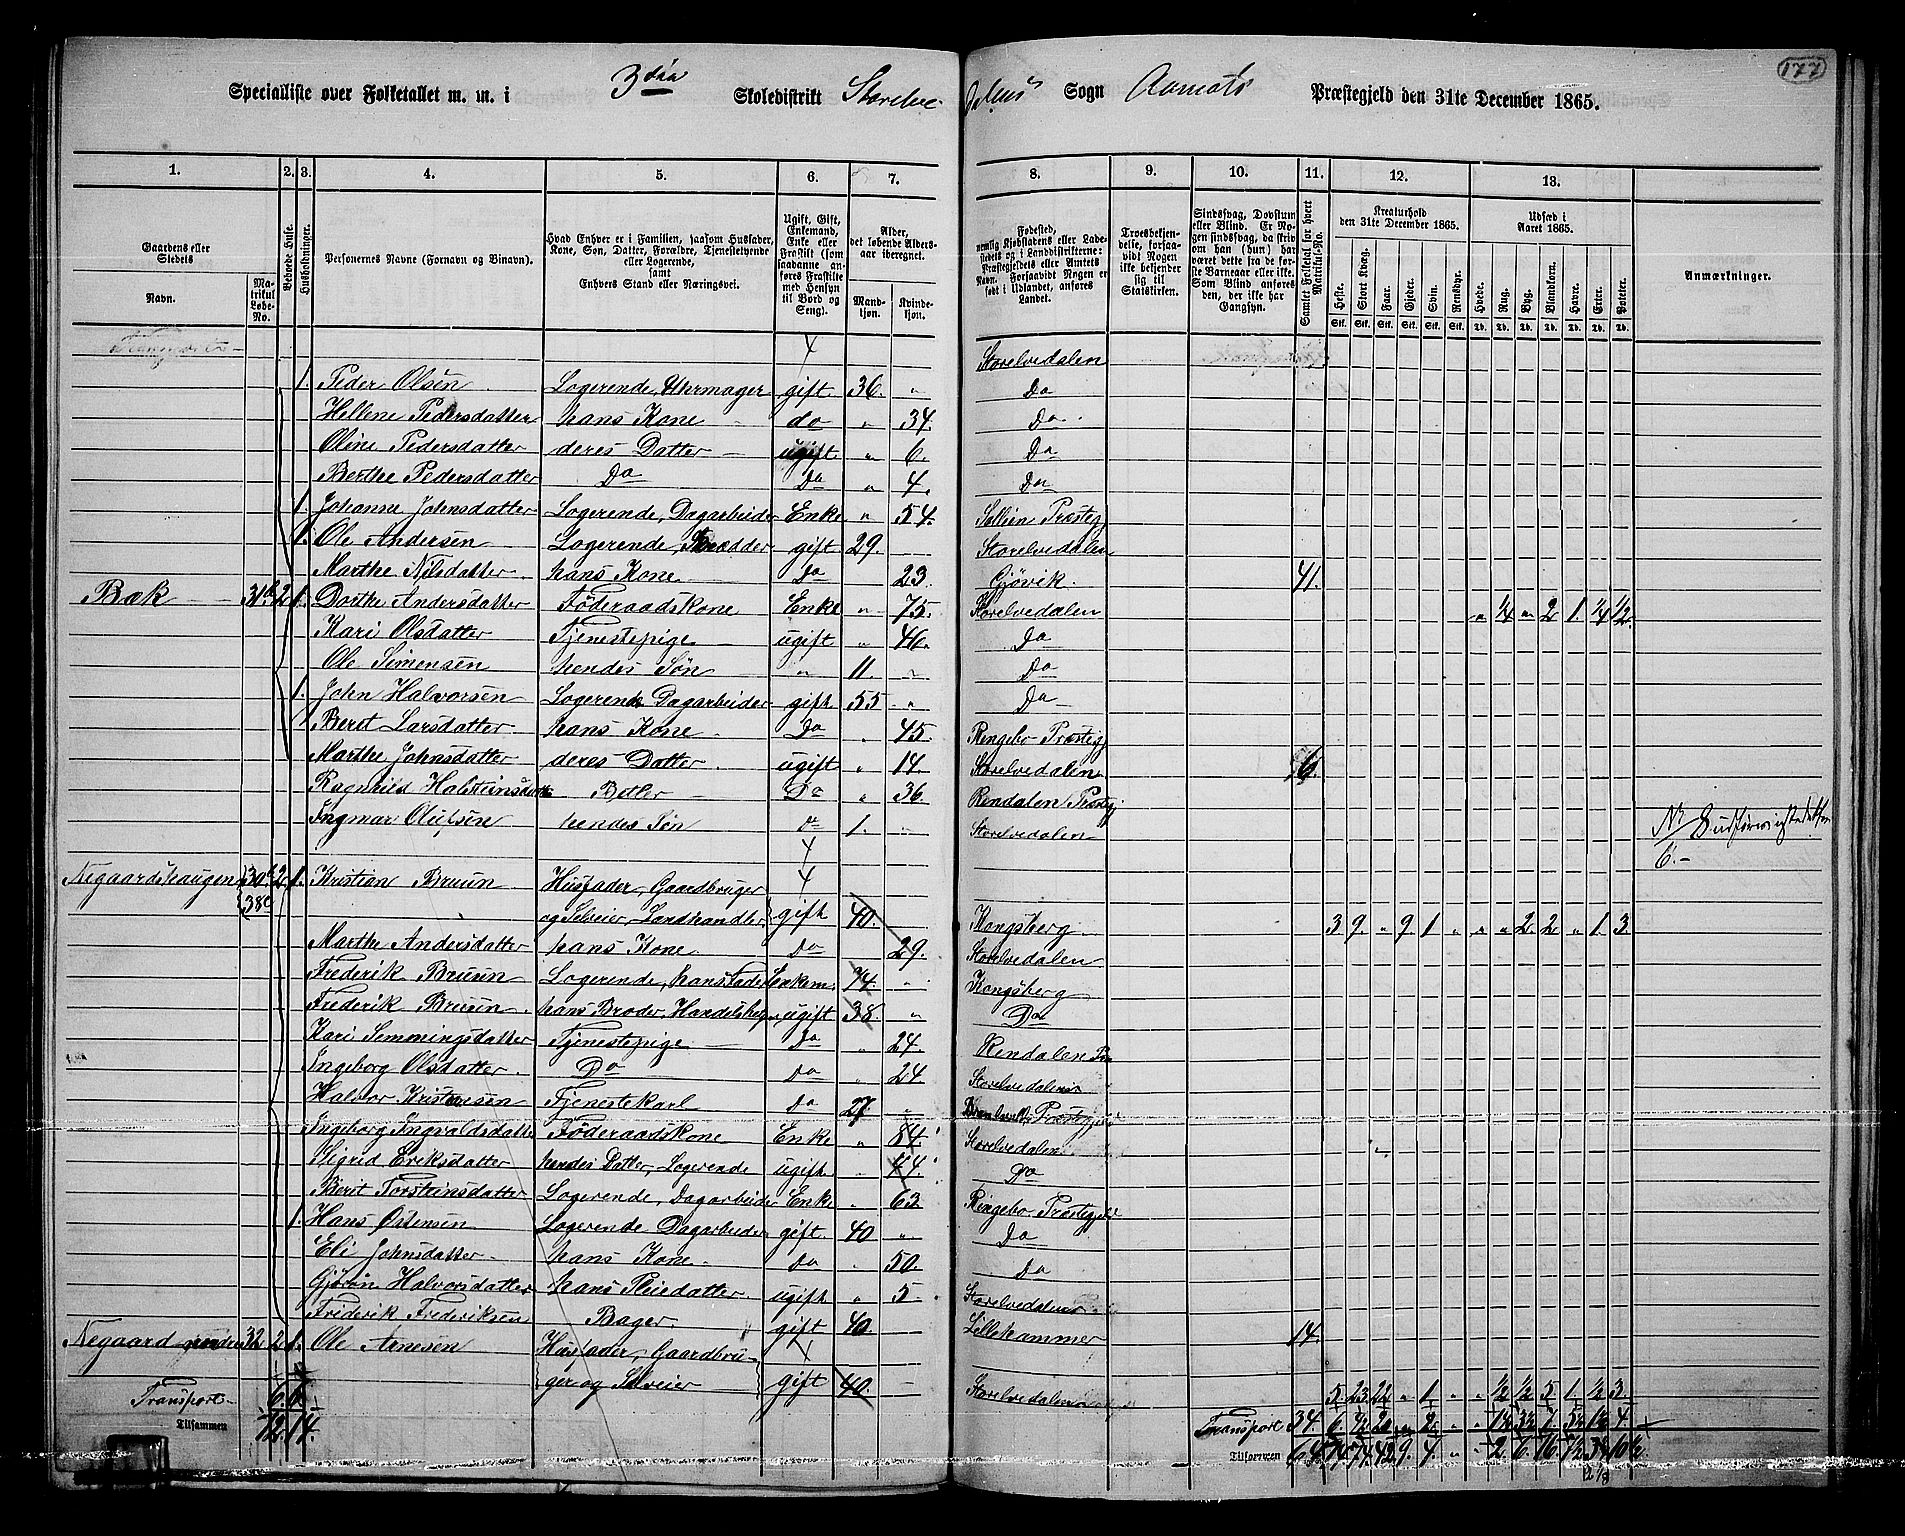 177
Specialliste over Folketallet m. m. i 3die Skoledistrikt Storelvedalens Sogn Aamots Præstegjeld den 31te December 1865.
1. 2. 3. 4. 5. 6. 7. 8. 9. 10. 11. 12. 13.
Gaardens eller Stedets
Navn.
Matrikul Løbe-No.
Beboede Huse.
Husholdninger.
Personernes Navne (Fornavn og Binavn).
Hvad Enhver er i Familien, saasom Husfader, Kone, Søn, Datter, Forældre, Tjenestetyende eller Logerende, samt Enhvers Stand eller Næringsvei.
Ugift, Gift, Enkemand, Enke eller Fraskilt (som saadanne anføres Fraskilte med Hensyn til Bord og Seng).
Alder, det løbende Alders-aar iberegnet.
Mandkjøn. Kvindekjøn.
Fødested, nemlig Kjøbstadens eller Ladestedets og i Landdistrikterne: Præstegjeldets eller Amtets Navn. Forsaavidt Nogen er født i Udlandet, anføres Landet.
Troesbekjendelse, forsaavidt Nogen ikke bekjender sig til Statskirken.
Sindssvag, Døvstum eller Blind. Er Nogen sindssvag, da skrives om han (hun) har været dette fra de første Barneaar eller ikke. Som Blind anføres den, der ikke har Gangsyn.
Samlet Folketal for hvert Matrikuls-No.
Kreaturhold den 31te December 1865.
Heste. Stort Kvæg. Faar. Gjeder. Svin. Rensdyr.
Udsæd i Aaret 1865.
Hvede. Rug. Byg. Blandkorn. Havre. Erter. Poteter.
Anmærkninger.
Storelvedalen
1. Peder Olsen Logerende, Uhrmager gift 36. " Do
Hellene Pedersdatter hans Kone do " 34. Do
Oline Pedersdatter deres Datter ugift " 6. Do
Berthe Pedersdatter Do Do " 4. Do
1. Johanne Johnsdatter Logerende, Dagarbeider Enke " 54. Sollien Præstegj
1. Ole Andersen Logerende, Skrædder gift 29. Storelvedalen
Marthe Nilsdatter hans Kone Do 23 Gjøvik. 41.
Bæk 2 1. Dorthe Andersdatter Føderaadskone Enke " 75. Storelvedalen " 1/4 " 2 1. 1/4 1/2.
Kari Olsdatter Tjenestepige ugift " 46. Do
Ole Simensen hendes Søn " 11. " Do
1. John Halvorsen Logerende Dagarbeider gift 55 " Do
Berit Larsdatter hans Kone Do " 45. Ringebo Præstegj
Marthe Johnsdatter deres Datter ugift " 14. Storelvedalen 6.
Ragnhild Halsteinsdatter Betler Do " 36. Rendalen Præstegj
Ingmar Olufsen hendes Søn do 1. " Storelvedalen
6.-
Negaardshaugen 30 38c 2 1. Kristian Bruun Husfader, Gaardbruger
og Selveier, Landhandler gift 40. Kongsberg 3 9. " 9. 1 " " " 2 2 " 1. 3
Marthe Andersdatter hans Kone Do 29. Storelvedalen
Frederik Bruun Logerende, hans Fader Enkem. 74. " Kongsberg
Frederik Bruun hans Broder, Handelsbetj ugift 38. " Do
Kari Semmingsdatter Tjenestepige Do " 24. Rendalen Præ
Ingeborg Olsdatter Do do " 24 Storelvedalen
Halvor Kristensen Tjenestekarl do 27 " Præstegjeld
Ingeborg Ingvaldsdatter Føderaadskone Enke " 84. Storelvedalen
Sigrid Eriksdatter hendes Datter, Logerende ugift " 44. Do
Berit Torsteinsdatter Logerende, Dagarbeider Enke " 63 Ringebo Præstegjeld
1 Hans Østensen Logerende Dagarbeider gift 40 " Do
Eli Johnsdatter hans Kone do " 50. Do
Gjøran Halvorsdatter hans Pleiedatter ugift " 5 Storelvedalen
Friderik Frederiksen Bager gift 40. Lillehammer 14.
Negaard 32 2 1. Ole Arnesen Husfader, Gaardbru-
ger og Selveier gift 40. - Storelvedalen 5. 23. 22 " 1 " " 1/2 1/2 5 1. 1/2 3.
Transport 6. 6
Transport 34.
Tilsammen 12. 14.
Tilsammen 64.